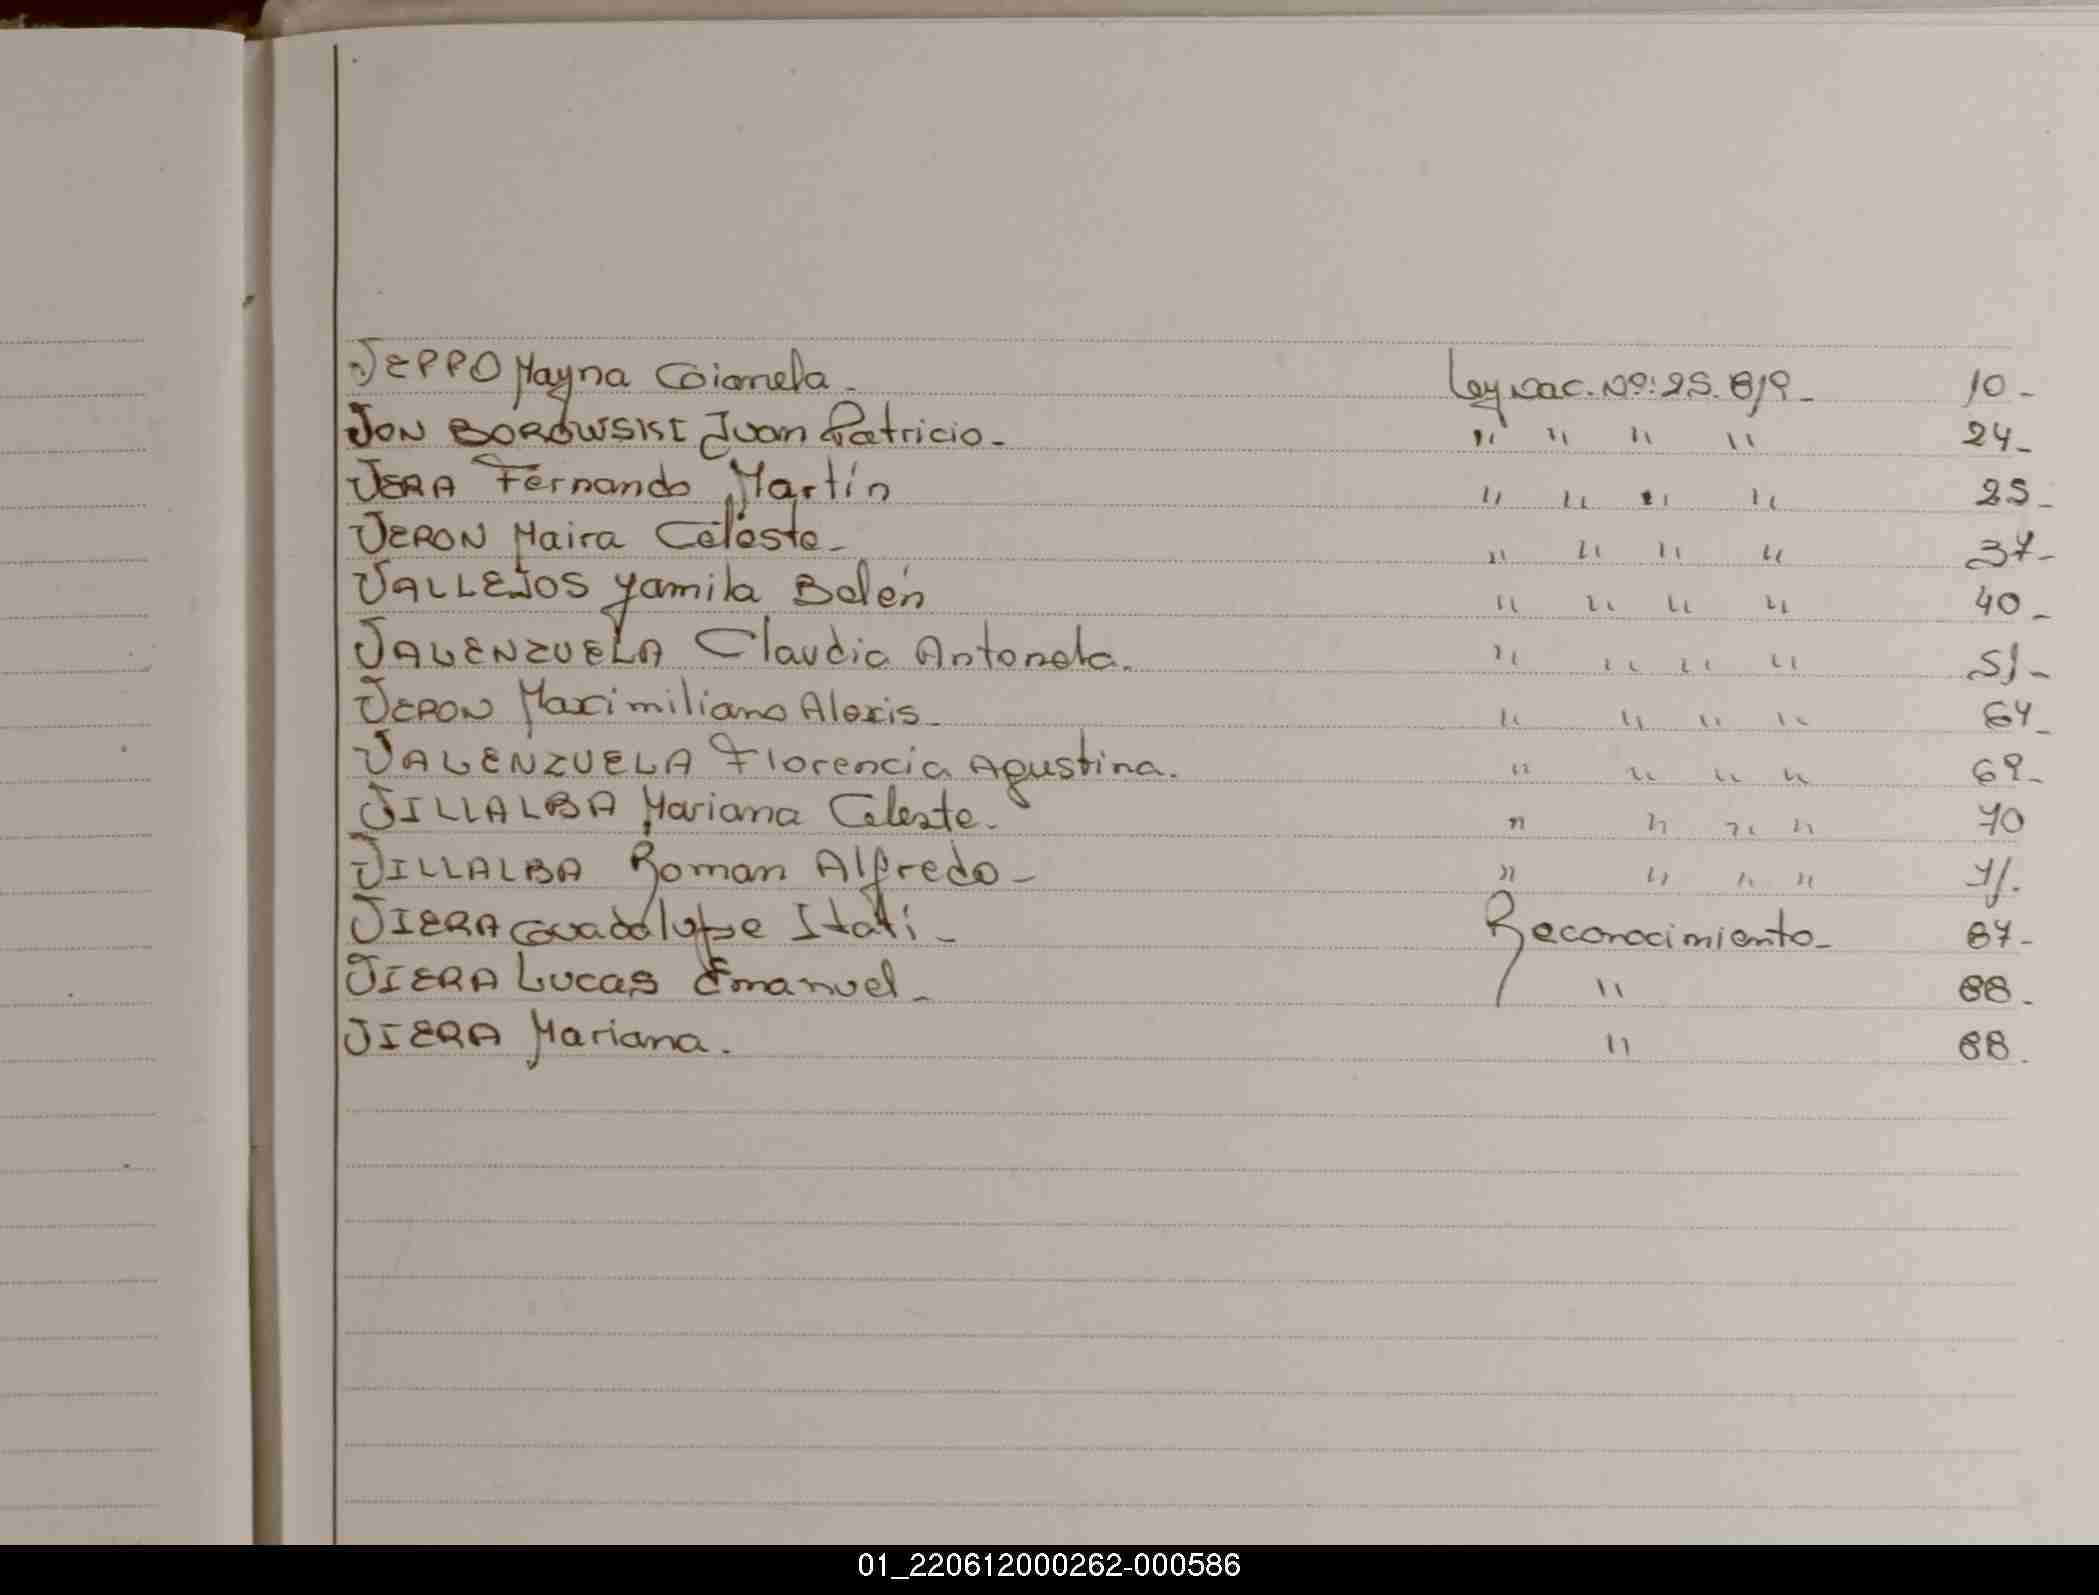 VEPPO Mayna Gianela. Ley Nac. Nº: 25.819_ 10_
VON BOROWSKI Juan Patricio_ " " " " 24_
VERA Fernando Martín " " " " 25_
VERON Maira Celeste_ " " " " 37_
VALLEJOS Yamila Belén " " " " 40_
VALENZUELA Claudia Antonela. " " " " 51_
VERON Maximiliano Alexis_ " " " " 64_
VALENZUELA Florencia Agustina. " " " " 69_
VILLALBA Mariana Celeste_ " " " " 70
VILLALBA Roman Alfredo_ " " " " 71.
VIERA Guadalupe Itatí_ Reconocimiento_ 87_
VIERA Lucas Emanuel_ " 88.
VIERA Mariana. " 88.
01_220612000262-000586